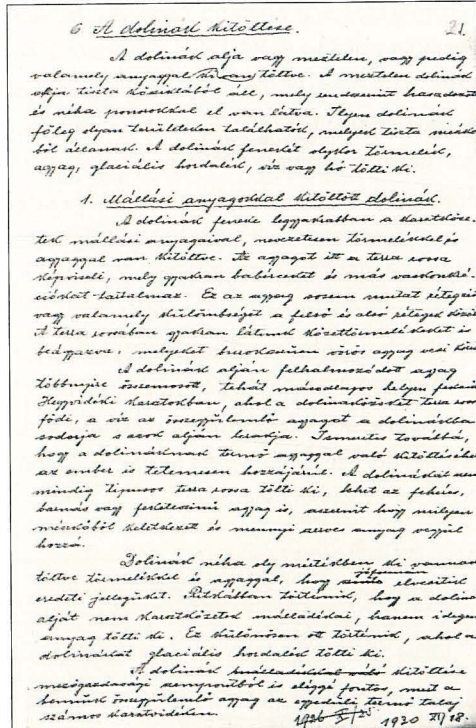 6 A dolinák kitöltése. 21.
A dolinák alja vagy meztelen, vagy pedig
valamely anyaggal ki van töltve. A meztelen dolinák
alja tiszta kősziklából áll, mely rendszerint hasadozott
és néha ponorokkal el van látva. Ilyen dolinák
főleg olyan területeken találhatók, melyek tiszta mészkő
ből állanak. A dolinák fenekét olykor törmelék,
agyag, glaciális hordalék, víz vagy hó tölti ki.
1. Mállási anyagokkal kitöltött dolinák.
A dolinák feneke leggyakrabban a karsztkőze-
tek mállási anyagaival, nevezetesen törmelékkel és
agyaggal van kitöltve. Az agyagot itt a terra rossa
képviseli, mely gyakran babérceket és más vaskonkré-
ciókat tartalmaz. Ez az agyag sosem mutat rétegzést
vagy valamely különbséget a felső és alsó rétegek között
A terra rossában gyakran látunk kőzettörmelékeket is
beágyazva, melyeket burokszerűen vörös agyag vesz körül
A dolinák alján felhalmozódott agyag
többnyire összemosott, tehát másodlagos helyen fekszik
Hegyvidéki karsztokban, ahol a dolinaközöket terra rossa
födi, a víz az összegyülemlő agyagot a dolinákba
sodorja s azok alján lerakja. Ismeretes továbbá,
hogy a dolináknak termő agyaggal való kitöltéséhez
az ember is tetemesen hozzájárul. A dolinákat nem
mindig tipusos terra rossa tölti ki, lehet az fehéres,
barnás vagy feketeszinű agyag is, aszerint hogy milyen
mészkőből keletkezett és mennyi szerves anyag vegyül
hozzá.
Dolinák néha oly mértékben ki vannak
töltve törmelékkel és agyaggal, hogy jóformán elveszítik
eredeti jellegüket. Ritkábban történik, hogy a dolinák
alját nem karsztkőzetek málladékai, hanem idegen
anyag tölti ki. Ez különösen ott történik, ahol a
dolinákat glaciális hordalék tölti ki.
A dolinák málladékkal való kitöltése
mezőgazdasági szempontból is eléggé fontos, mert a
bennük összegyülemlő agyag az egyedüli termő talaj
számos karsztvidéken. 1926 1930